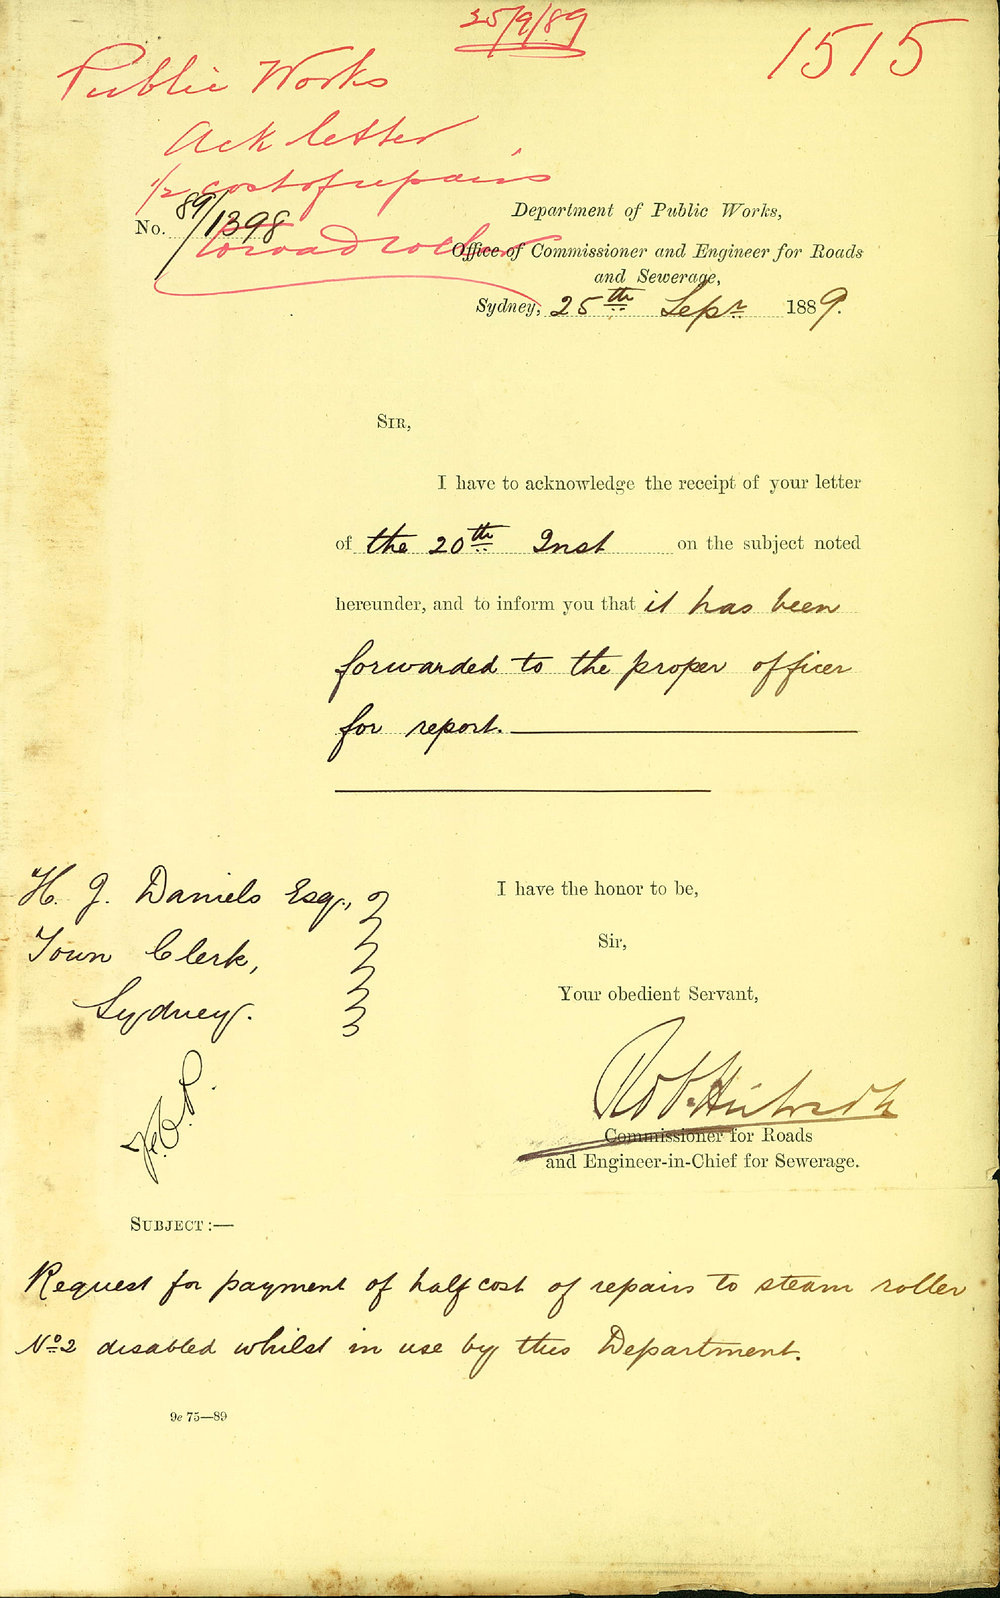 25/9/89
1515
Public Works
Ack letter
1/2 cost of repairs
to road roller
No. 89/1398
Department of Public Works,
Office of Commissioner and Engineer for Roads
and Sewerage,
Sydney, 25th Sepr 1889.
SIR,
I have to acknowledge the receipt of your letter
of the 20th Inst on the subject noted
hereunder, and to inform you that it has been
forwarded to the proper officer
for report.
H. J. Daniels Esq.,
Town Clerk,
Sydney.
I have the honor to be,
Sir,
Your obedient Servant,
Commissioner for Roads
and Engineer-in-Chief for Sewerage.
SUBJECT:—
Request for payment of half cost of repairs to steam roller
No 2 disabled whilst in use by this Department.
9e 75—89